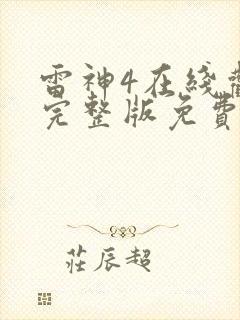 雷神4在线
完整版免費
莊辰超